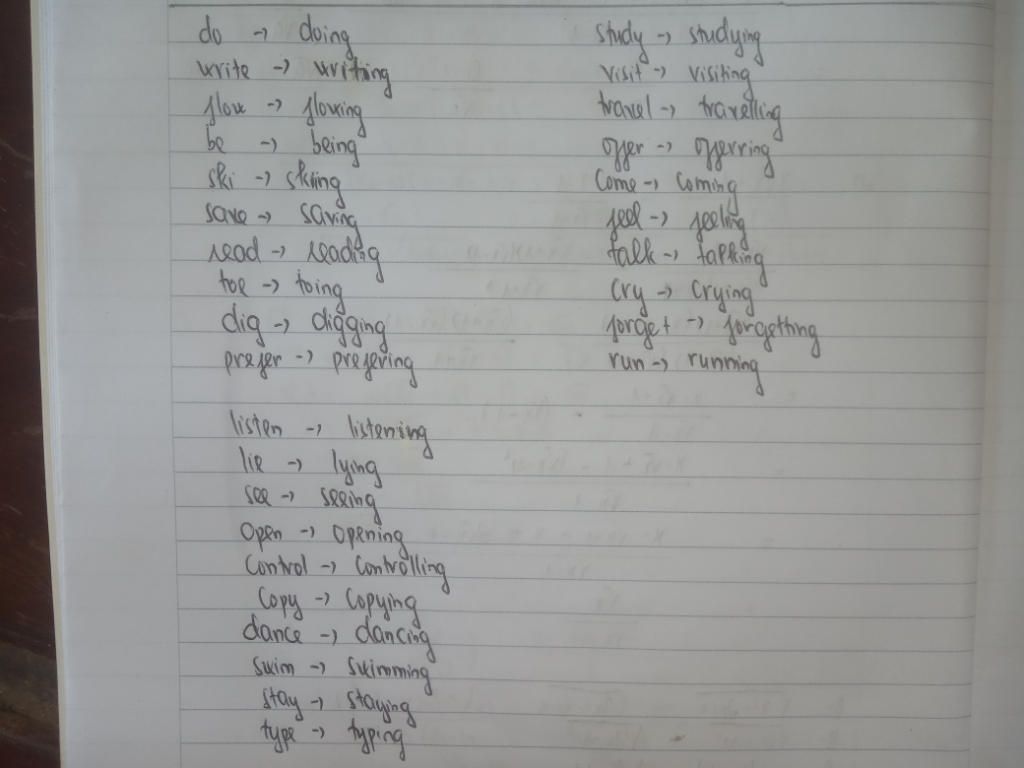 do → doing
write → writing
flow → flowing
be → being
ski → skiing
save → saving
read → reading
toe → toing
dig → digging
prefer → prefering
listen → listening
lie → lying
see → seeing
open → opening
control → controlling
copy → copying
dance → dancing
swim → swimming
stay → staying
type → typing
study → studying
visit → visiting
travel → travelling
offer → offerring
come → coming
feel → feeling
talk → talking
cry → crying
forget → forgetting
run → running